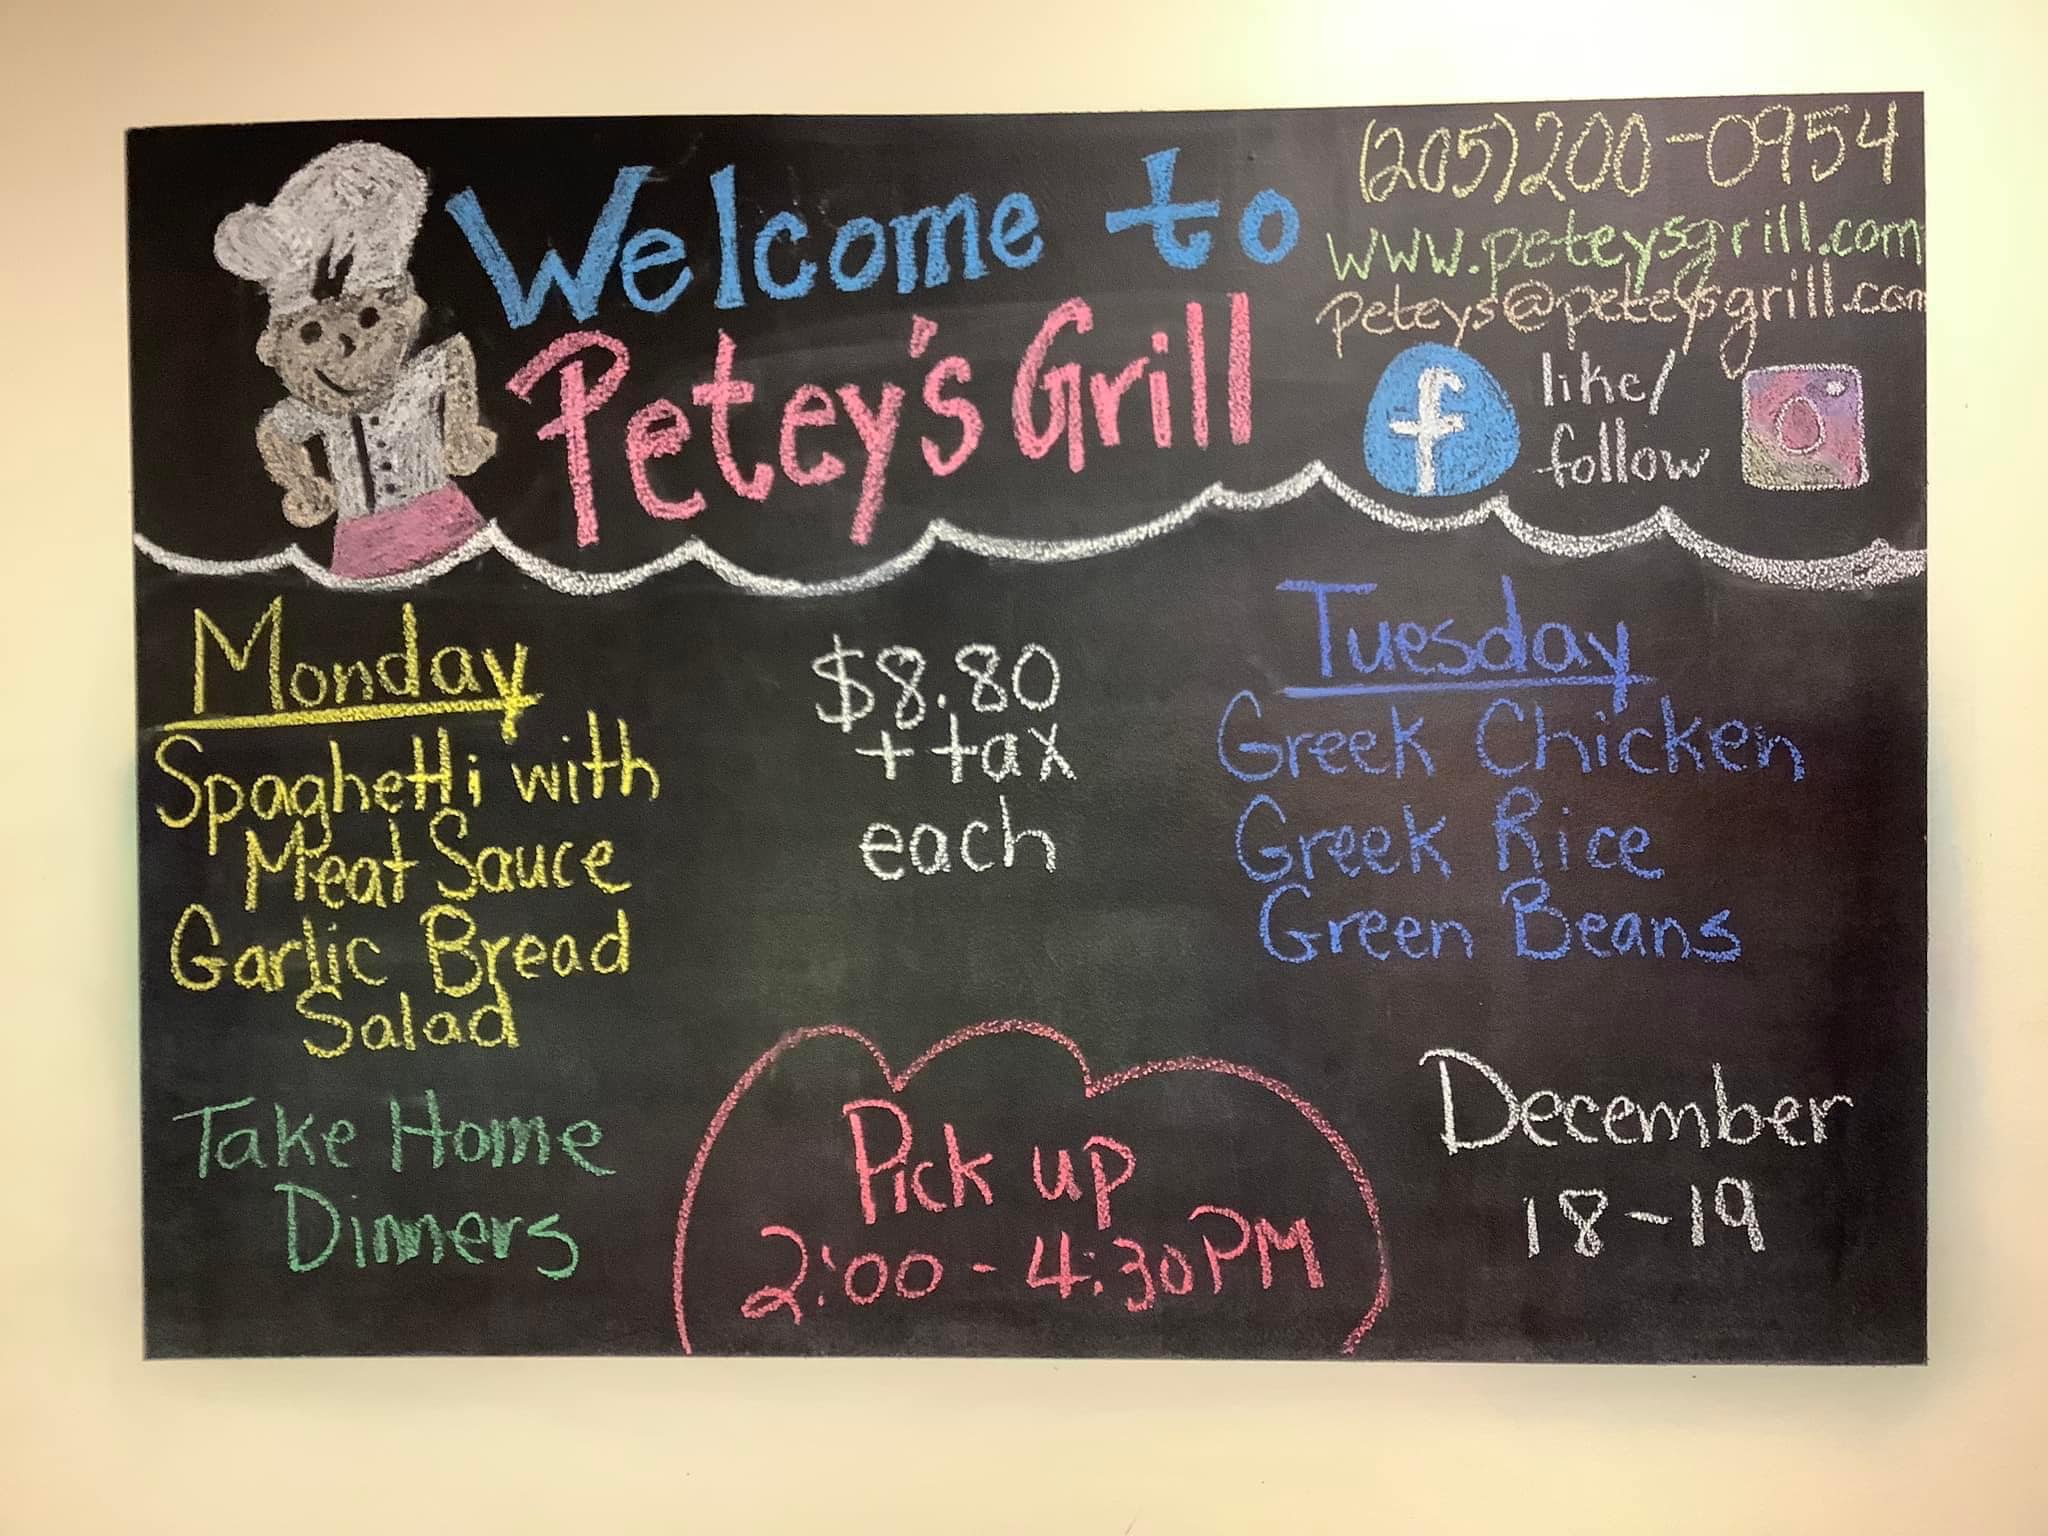 Welcome to
Petey's Grill
(205)200-0954
www.peteysgrill.com
peteys@peteysgrill.com
f
like/
follow
Monday
Spaghetti with
Meat Sauce
Garlic Bread
Salad
$8.80
+ tax
each
Tuesday
Greek Chicken
Greek Rice
Green Beans
Take Home
Dinners
Pick up
2:00 - 4:30PM
December
18-19